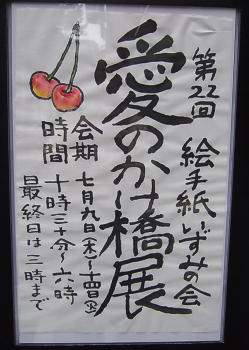 第22回 絵手紙いずみの会
愛のかけ橋展
会期 七月九日(木)〜十四日(火)
時間 十時三十分〜六時
最終日は三時まで